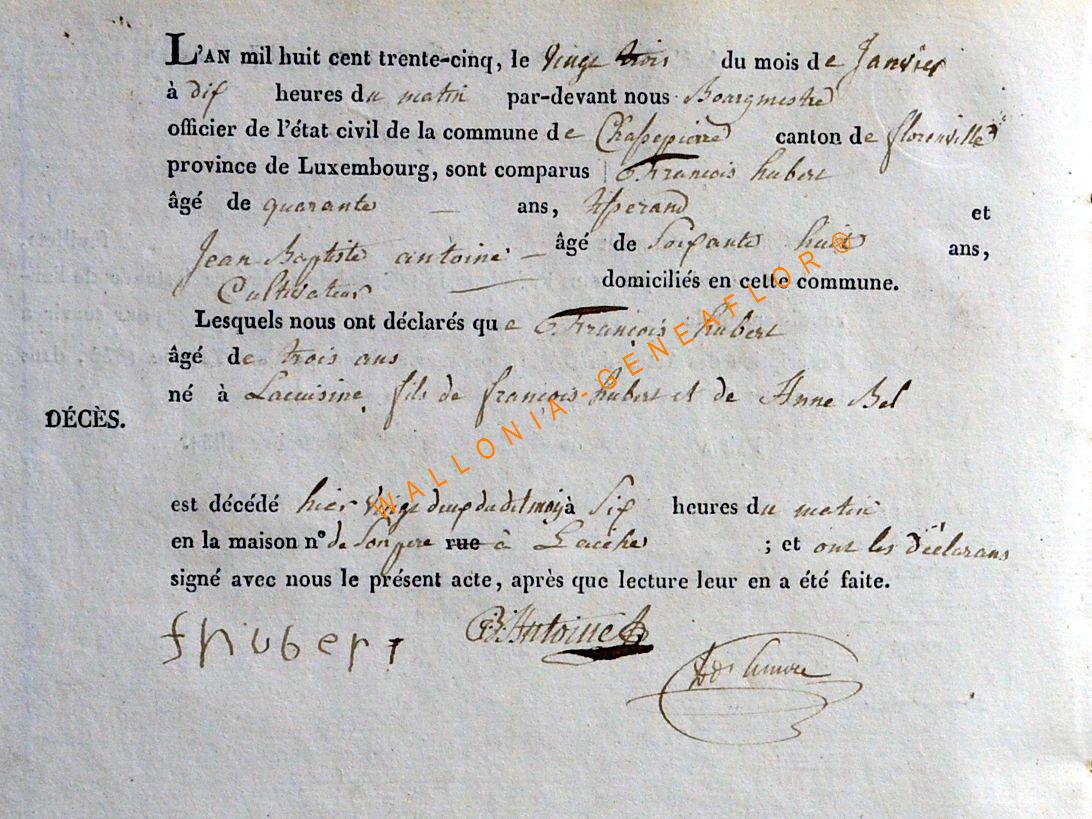 L'AN mil huit cent trente-cinq, le vingt trois du mois de Janvier
à dix heures du matin par-devant nous Bourgmestre
officier de l'état civil de la commune de Chassepierre canton de florenville
province de Luxembourg, sont comparus François hubert
âgé de quarante — ans, et
Jean Baptiste antoine — âgé de Soixante huit ans,
Cultivateur — domiciliés en cette commune.
Lesquels nous ont déclarés que François hubert
âgé de trois ans
né à Lacuisine, fils de françois hubert et de Anne Bel
DÉCÈS.
est décédé hier vingt deux du dit mois à Six heures du matin
en la maison nº de Son pere rue à Laiche ; et ont les Déclarans
signé avec nous le présent acte, après que lecture leur en a été faite.
f hubert Antoine
WALLONIA-GENEAFLOR®